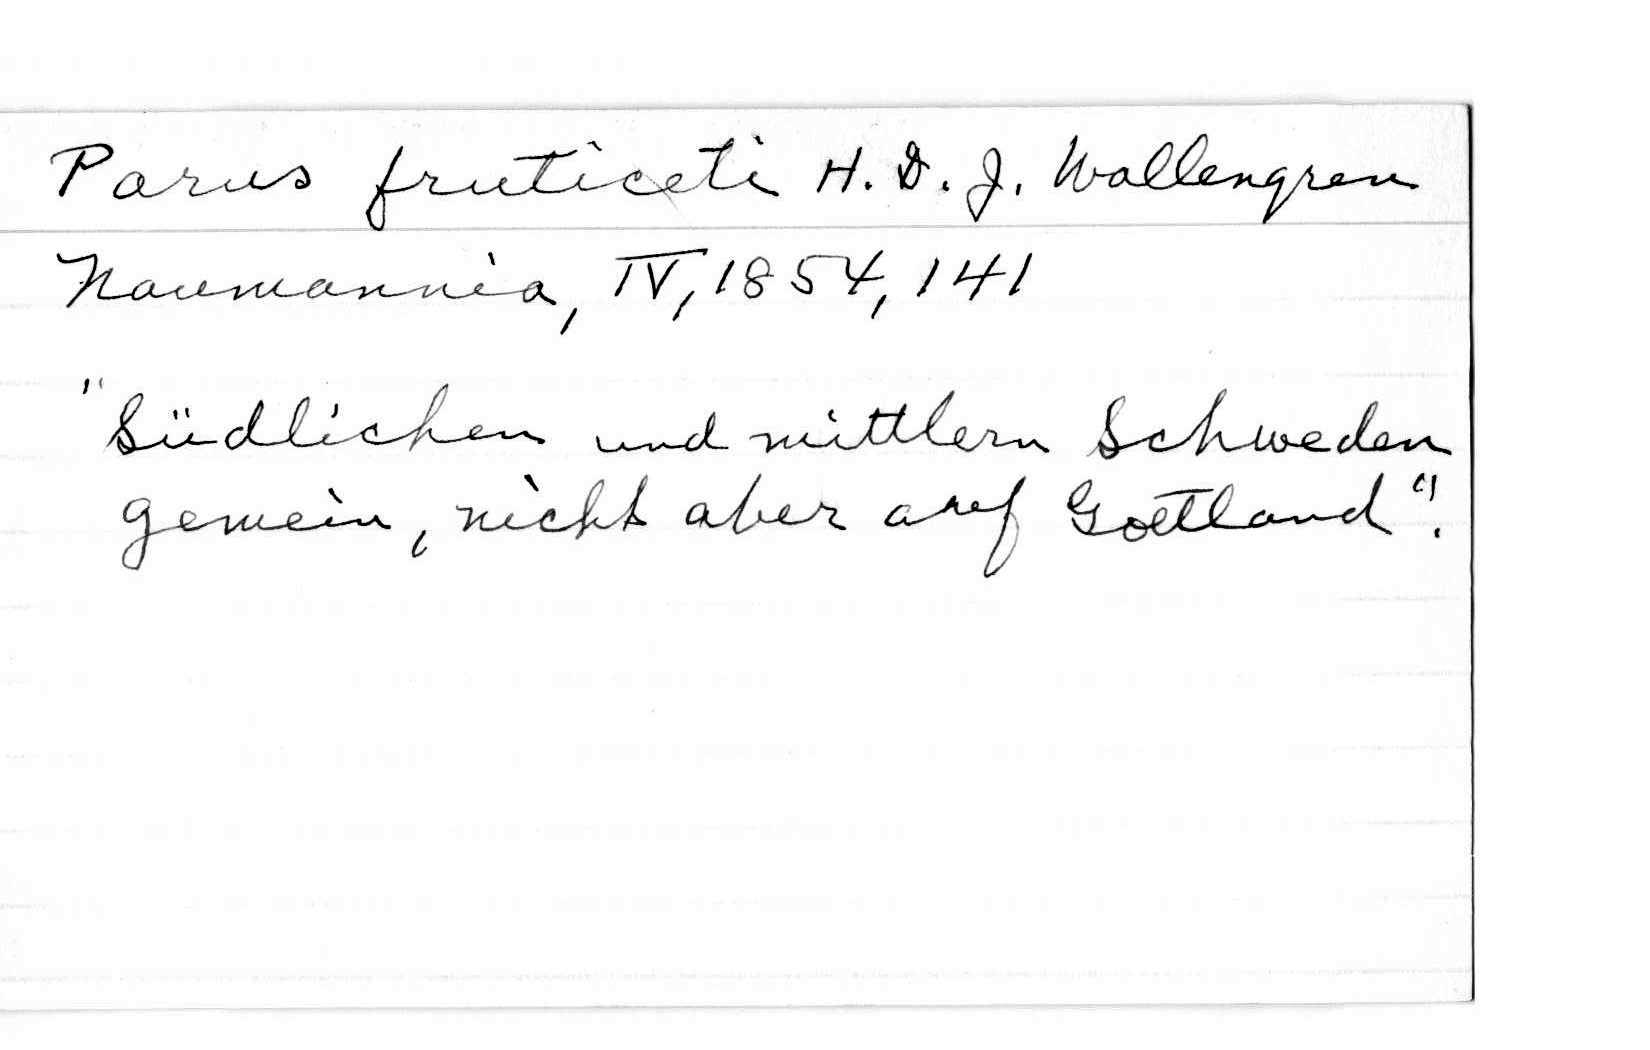 Parus fruticeti H. D. J. Wallengren
Naumannia, IV, 1854, 141
"Südlichen und mittlern Schweden
gemein, nicht aber auf Gottland".